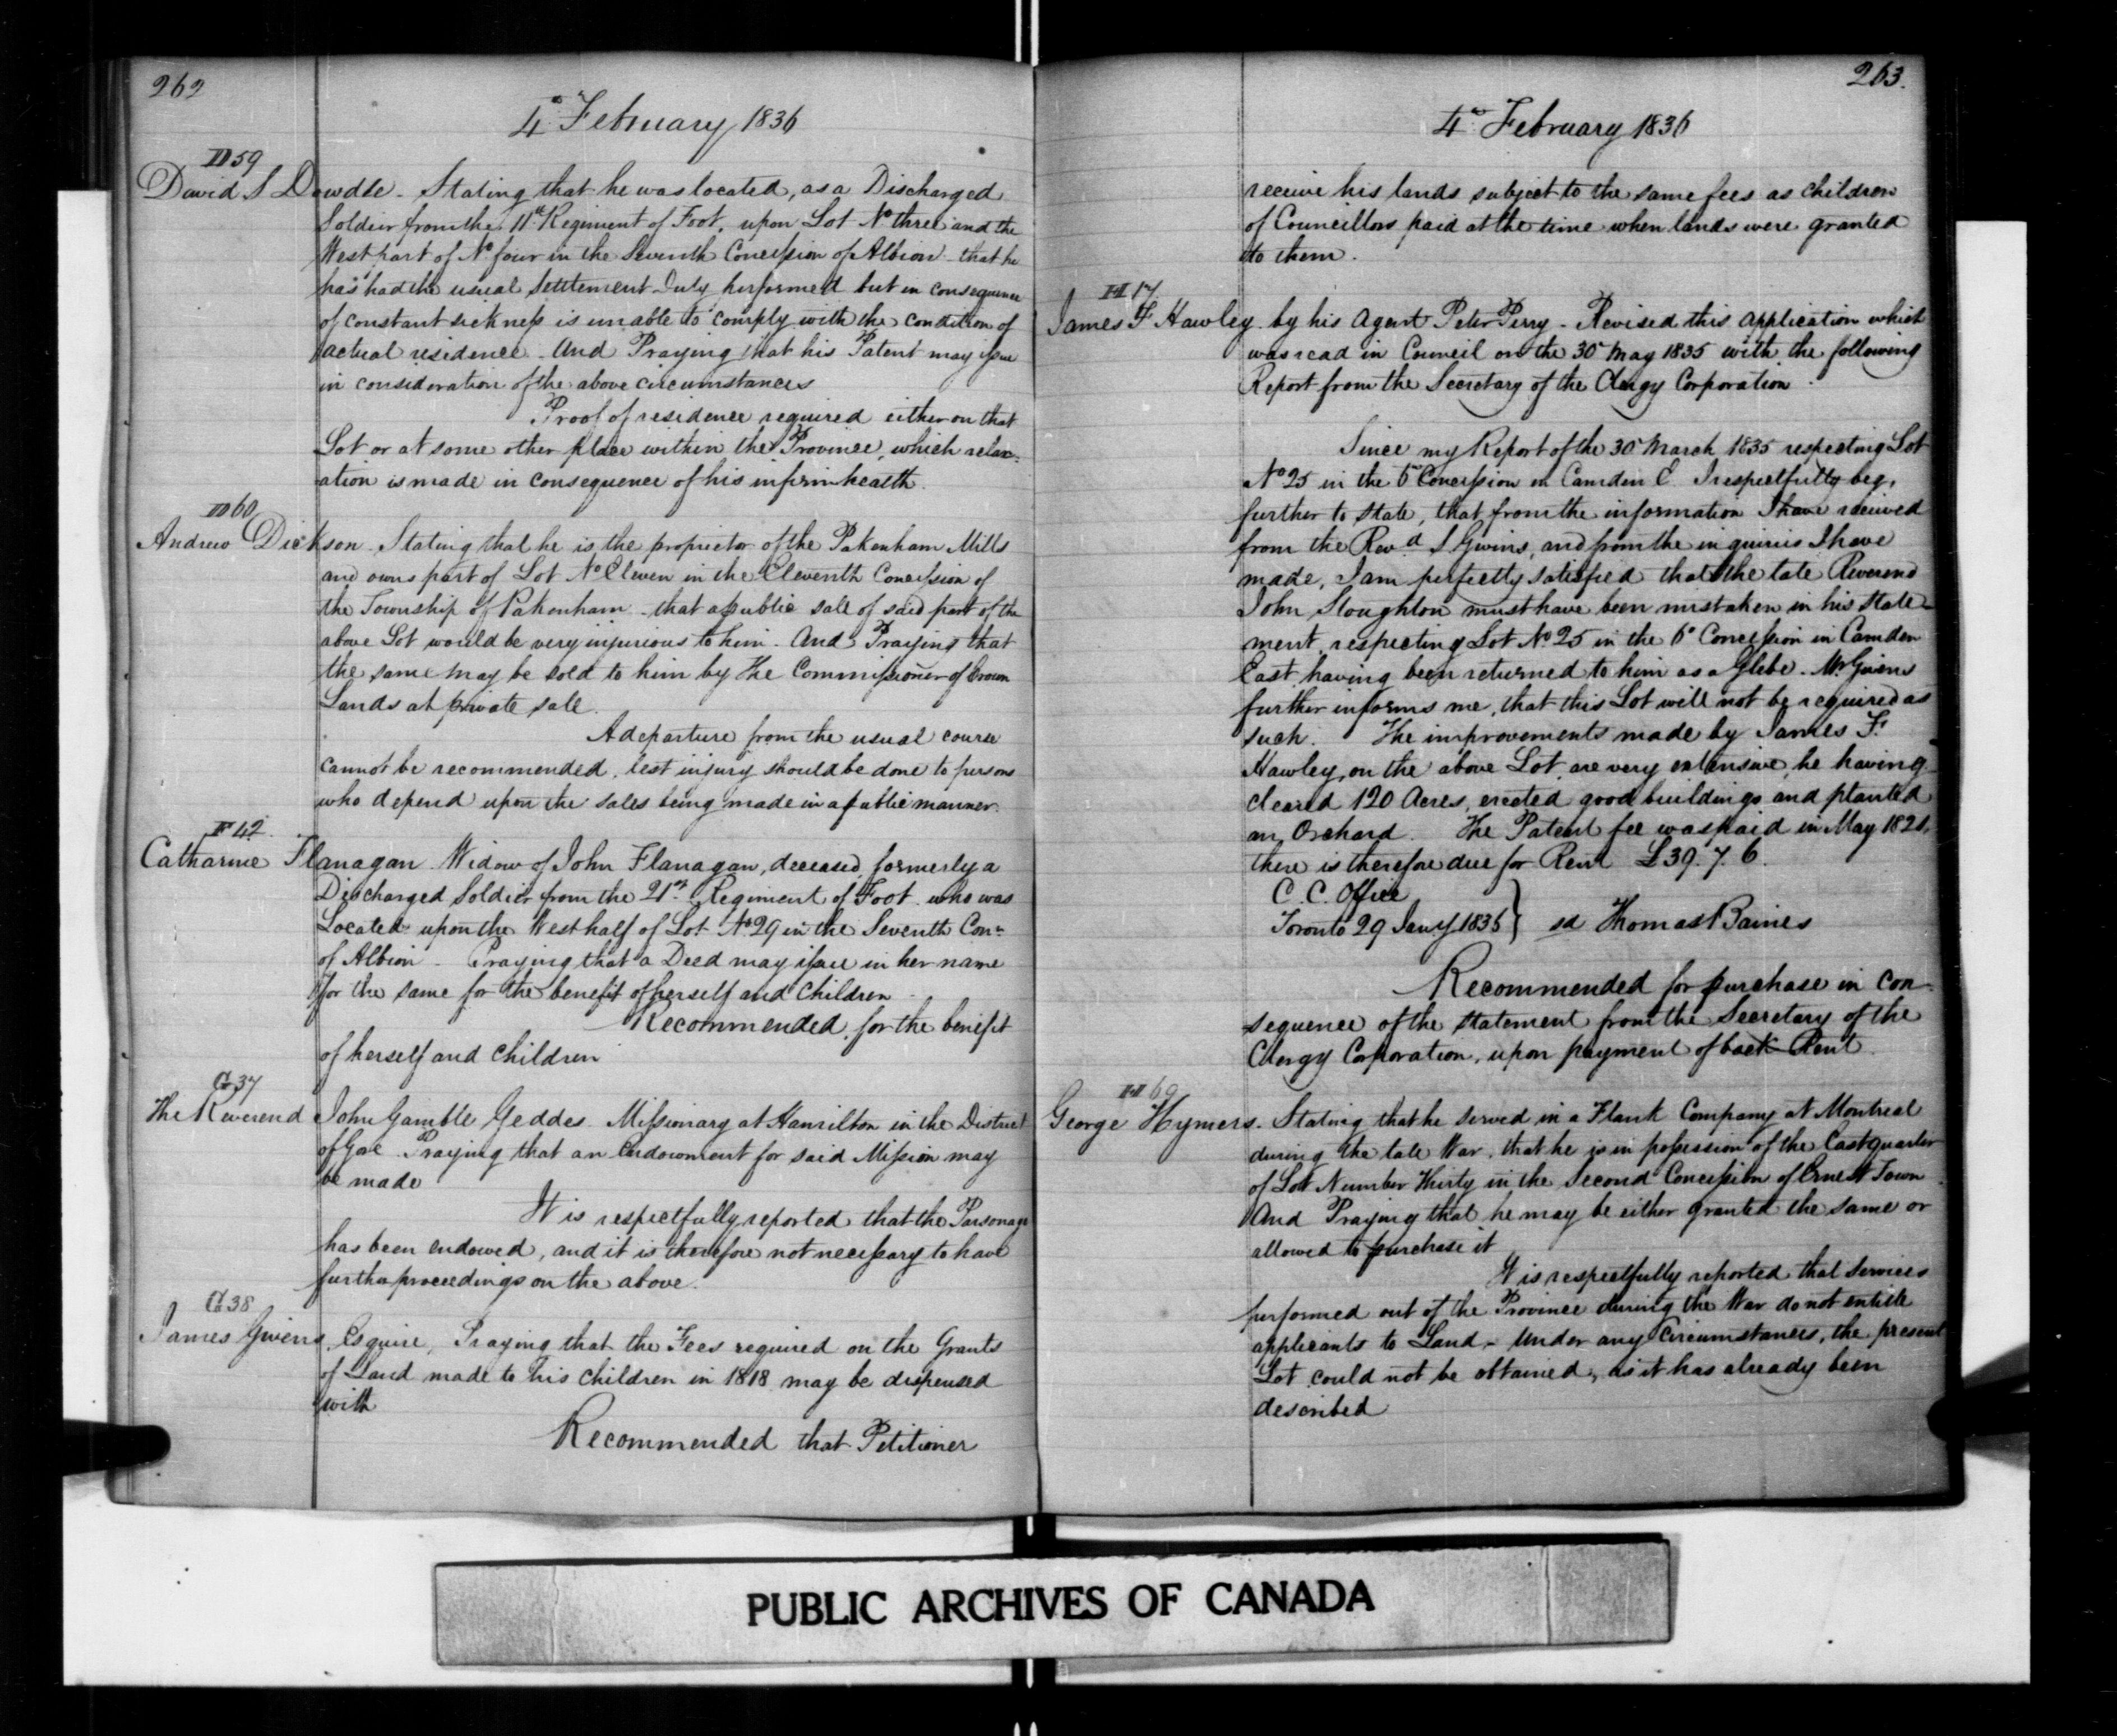 262
4th February 1836
D 59
David S Dowdle - Stating that he was located, as a Discharged
Soldier from the 11th Regiment of Foot, upon Lot No three and the
West part of No four in the Seventh Concession of Albion - that he
has had the usual Settlement Duty performed but in consequence
of constant sickness is unable to comply with the condition of
actual residence - And Praying that his Patent may issue
in consideration of the above circumstances
Proof of residence required either on that
Lot or at some other place within the Province, which relax-
ation is made in consequence of his infirm health.
D 60
Andrew Dickson - Stating that he is the proprietor of the Pakenham Mills
and owns part of Lot No Eleven in the Eleventh Concession of
the Township of Pakenham - that a public sale of said part of the
above Lot would be very injurious to him - And Praying that
the same may be sold to him by the Commissioner of Crown
Lands at private sale.
A departure from the usual course
cannot be recommended, lest injury should be done to persons
who depend upon the sales being made in a public manner.
F 42
Catharine Flanagan - Widow of John Flanagan, deceased, formerly a
Discharged Soldier from the 21st Regiment of Foot who was
Located upon the West half of Lot No 29 in the Seventh Con:
of Albion - Praying that a Deed may issue in her name
for the same for the benefit of herself and children -
Recommended, for the benefit
of herself and children
G 37
The Reverend John Gamble Geddes - Missionary at Hamilton in the District
of Gore - Praying that an Endowment for said Mission may
be made
It is respectfully reported that the Parsonage
has been endowed, and it is therefore not necessary to have
further proceedings on the above.
G 38
James Givens, Esquire, Praying that the Fees required on the Grants
of Land made to his children in 1818 may be dispensed
with
Recommended that Petitioner
263.
4th February 1836
receive his lands subject to the same fees as children
of Councillors paid at the time when lands were granted
to them.
H 17
James F Hawley by his Agent Peter Perry - Revised this application which
was read in Council on the 30th May 1835 with the following
Report from the Secretary of the Clergy Corporation
Since my Report of the 30th March 1835 respecting Lot
No 25 in the 6th Concession in Camden E. I respectfully beg,
further to state, that from the information I have received
from the Revd S Givins, and from the inquiries I have
made, I am perfectly satisfied that the late Reverend
John Stoughton must have been mistaken in his state-
ment, respecting Lot No 25 in the 6th Concession in Camden
East, having been returned to him as a Glebe - Mr Givens
further informs me, that this Lot will not be required as
such. The improvements made by James F.
Hawley, on the above Lot, are very extensive, he having
cleared 120 Acres, erected good buildings and planted
an Orchard. The Patent fee was paid in May 1821,
there is therefore due for Rent £39.7.6.
C. C. Office
Toronto 29 Jany 1836 } sd Thomas Baines
Recommended for purchase in con-
sequence of the statement from the Secretary of the
Clergy Corporation, upon payment of back Rent.
H 69
George Hymers - Stating that he served in a Flank Company at Montreal
during the late War, that he is in possession of the East quarter
of Lot Number Thirty in the Second Concession of Ernest Town
And Praying that he may be either granted the same or
allowed to purchase it
It is respectfully reported that services
performed out of the Province during the War do not entitle
applicants to Land - Under any circumstances, the present
Lot could not be obtained, as it has already been
described
PUBLIC ARCHIVES OF CANADA